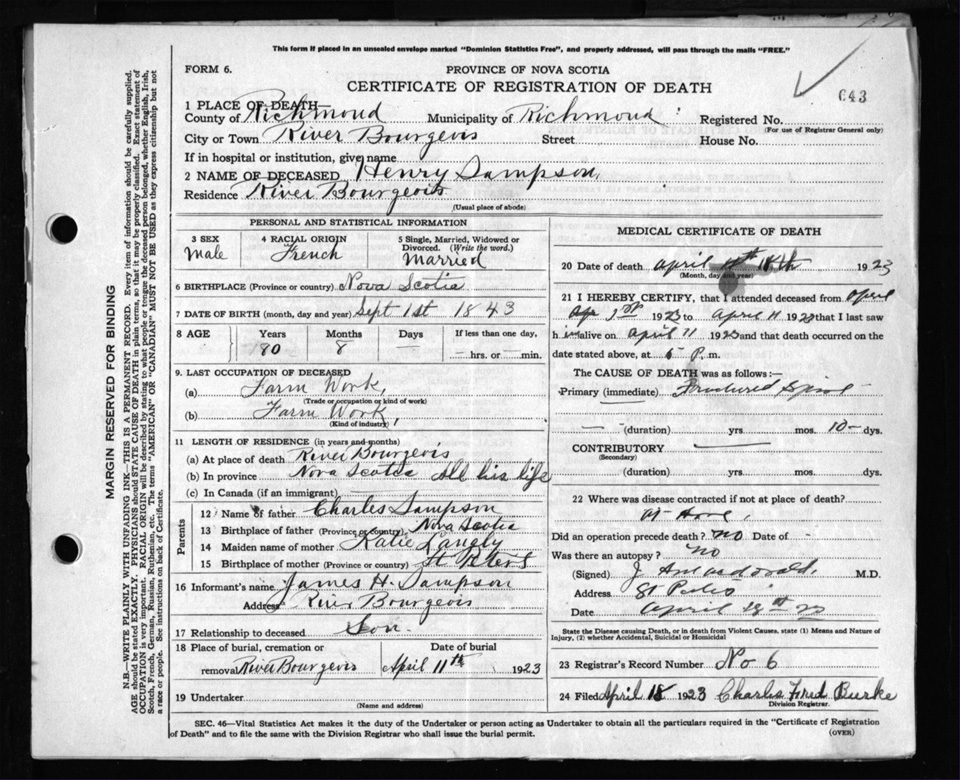 This form if placed in an unsealed envelope marked "Dominion Statistics Free", and properly addressed, will pass through the mails "FREE."
FORM 6.
PROVINCE OF NOVA SCOTIA
CERTIFICATE OF REGISTRATION OF DEATH
643
1 PLACE OF DEATH—
County of Richmond Municipality of Richmond Registered No.
(For use of Registrar General only)
City or Town River Bourgeois Street House No.
If in hospital or institution, give name
2 NAME OF DECEASED Henry Sampson
Residence River Bourgeois
(Usual place of abode)
PERSONAL AND STATISTICAL INFORMATION
3 SEX
Male
4 RACIAL ORIGIN
French
5 Single, Married, Widowed or Divorced. (Write the word.)
Married
6 BIRTHPLACE (Province or country) Nova Scotia
7 DATE OF BIRTH (month, day and year) Sept 1st 1843
8 AGE Years Months Days If less than one day,
80 8 — — hrs. or — min.
9. LAST OCCUPATION OF DECEASED
(a) Farm Work,
(Trade or occupation or kind of work)
(b) Farm Work,
(Kind of industry)
11 LENGTH OF RESIDENCE (in years and months)
(a) At place of death River Bourgeois
(b) In province Nova Scotia All his life
(c) In Canada (if an immigrant)
Parents
12 Name of father Charles Sampson
13 Birthplace of father (Province or country) Nova Scotia
14 Maiden name of mother Katie Langly
15 Birthplace of mother (Province or country) St. Peters
16 Informant's name James H. Sampson
Address River Bourgeois
17 Relationship to deceased Son.
18 Place of burial, cremation or removal Date of burial
River Bourgeois April 11th 1923
19 Undertaker
(Name and address)
MEDICAL CERTIFICATE OF DEATH
20 Date of death April 11th 1923
(Month, day and year)
21 I HEREBY CERTIFY, that I attended deceased from April
1923 to April 11 1923 that I last saw
h im alive on April 11 1923 and that death occurred on the
date stated above, at P. m.
The CAUSE OF DEATH was as follows:—
Primary (immediate) Fractured Spine
(duration) yrs. mos. 10 dys.
CONTRIBUTORY
(Secondary)
(duration) yrs. mos. dys.
22 Where was disease contracted if not at place of death?
At Home,
Did an operation precede death? No Date of -
Was there an autopsy? No
(Signed) M.D.
Address St Peters
Date April 18th 23
State the Disease causing Death, or in death from Violent Causes, state (1) Means and Nature of Injury, (2) whether Accidental, Suicidal or Homicidal
23 Registrar's Record Number No 6
24 Filed April 18 1923 Charles Fred Burke
Division Registrar.
SEC. 46—Vital Statistics Act makes it the duty of the Undertaker or person acting as Undertaker to obtain all the particulars required in the "Certificate of Registration
of Death" and to file the same with the Division Registrar who shall issue the burial permit.
(OVER)
MARGIN RESERVED FOR BINDING
N.B.—WRITE PLAINLY WITH UNFADING INK—THIS IS A PERMANENT RECORD. Every item of information should be carefully supplied.
AGE should be stated EXACTLY. PHYSICIANS should STATE CAUSE OF DEATH in plain terms, so that it may be properly classified. Exact statement of
OCCUPATION is very important. RACIAL ORIGIN will be described by stating to what people or tongue the deceased person belonged, whether English, Irish,
Scotch, French, German, Russian, Ruthenian, etc. The terms "AMERICAN" or "CANADIAN" MUST NOT BE USED as they express citizenship but not
a race or people. See instructions on back of Certificate.